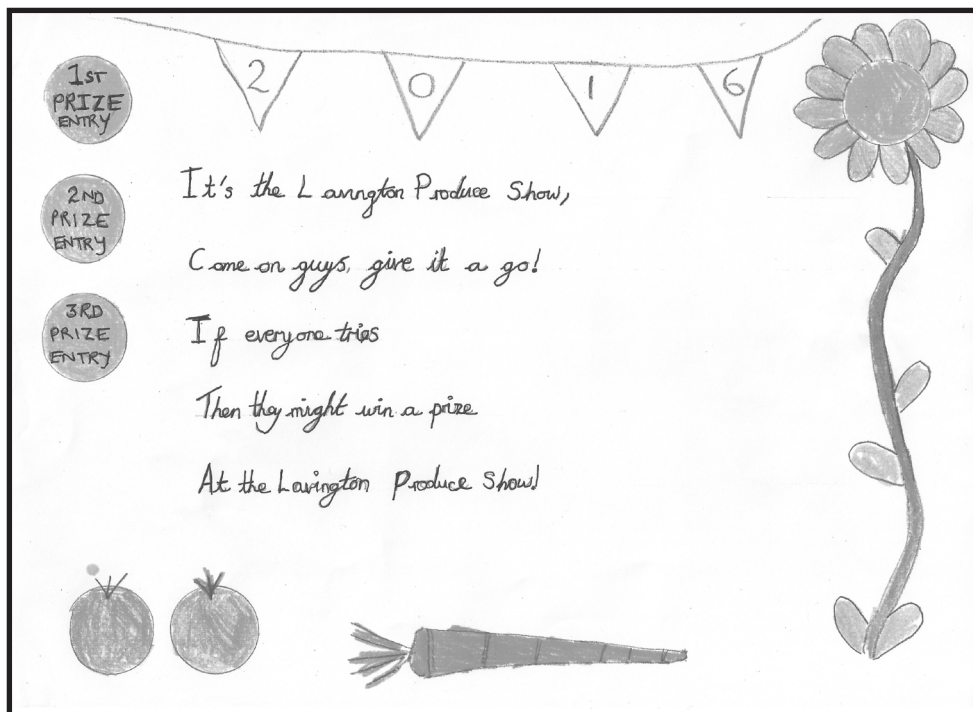 2 0 1 6
1ST
PRIZE
ENTRY
2ND
PRIZE
ENTRY
3RD
PRIZE
ENTRY
It's the Lavington Produce Show,
Come on guys, give it a go!
If everyone tries
Then they might win a prize
At the Lavington Produce Show!